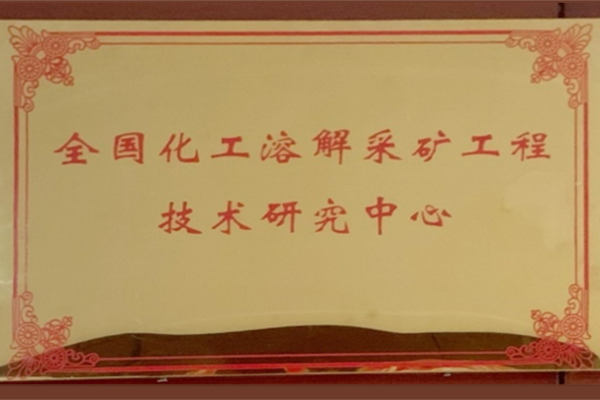 全国化工溶解采矿工程
技术研究中心